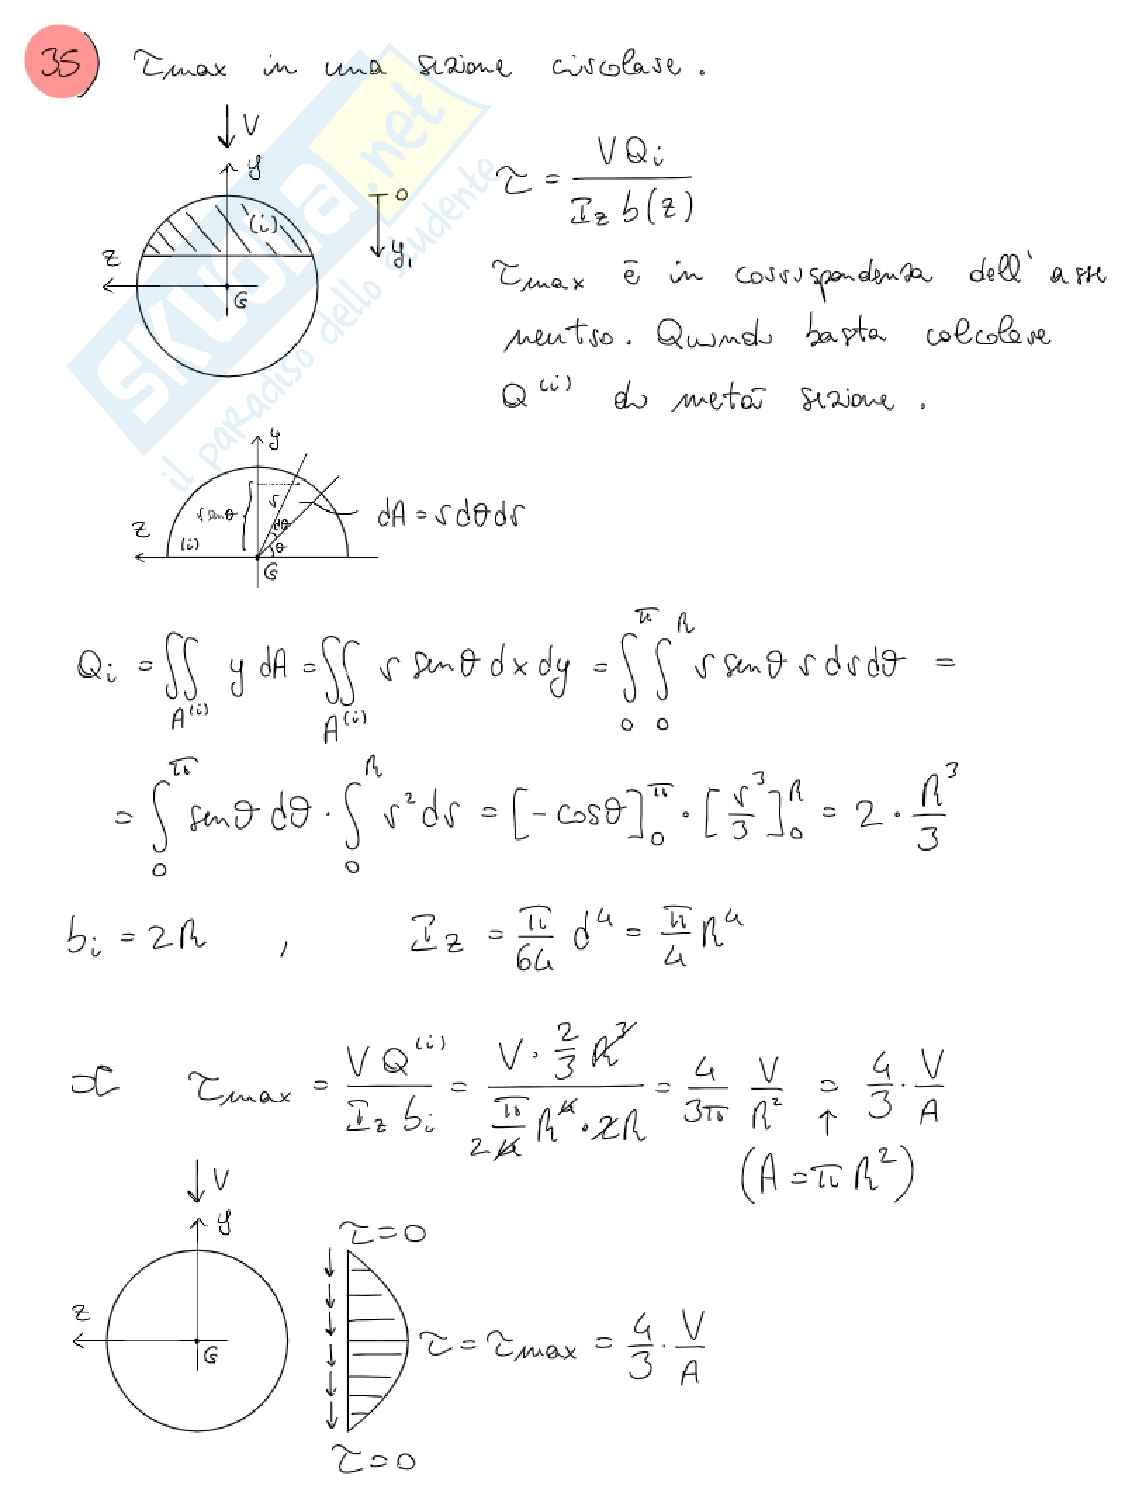 35) τmax in una sezione circolare.
↓ V
y
(i)
z
G
0
y₁
τ = V Qi / Iz b(z)
τmax è in corrispondenza dell'asse
neutro. Quindi basta calcolare
Q^(i) di metà sezione.
SKUOLA.net
il paradiso dello studente
y
r senθ
r
dθ
θ
z
(i)
G
dA = r dθ dr
Qi = ∬_A^(i) y dA = ∬_A^(i) r senθ dx dy = ∫₀^π ∫₀^R r senθ r dr dθ =
= ∫₀^π senθ dθ · ∫₀^R r² dr = [-cosθ]₀^π · [r³/3]₀^R = 2 · R³/3
bi = 2R , Iz = π/64 d⁴ = π/4 R⁴
⇒ τmax = V Q^(i) / Iz bi = V · 2/3 R³ / π/4 R⁴ · 2R = 4/3π V/R² = 4/3 · V/A
2
↑
(A = π R²)
↓ V
y
z
G
τ = 0
τ = τmax = 4/3 · V/A
τ = 0